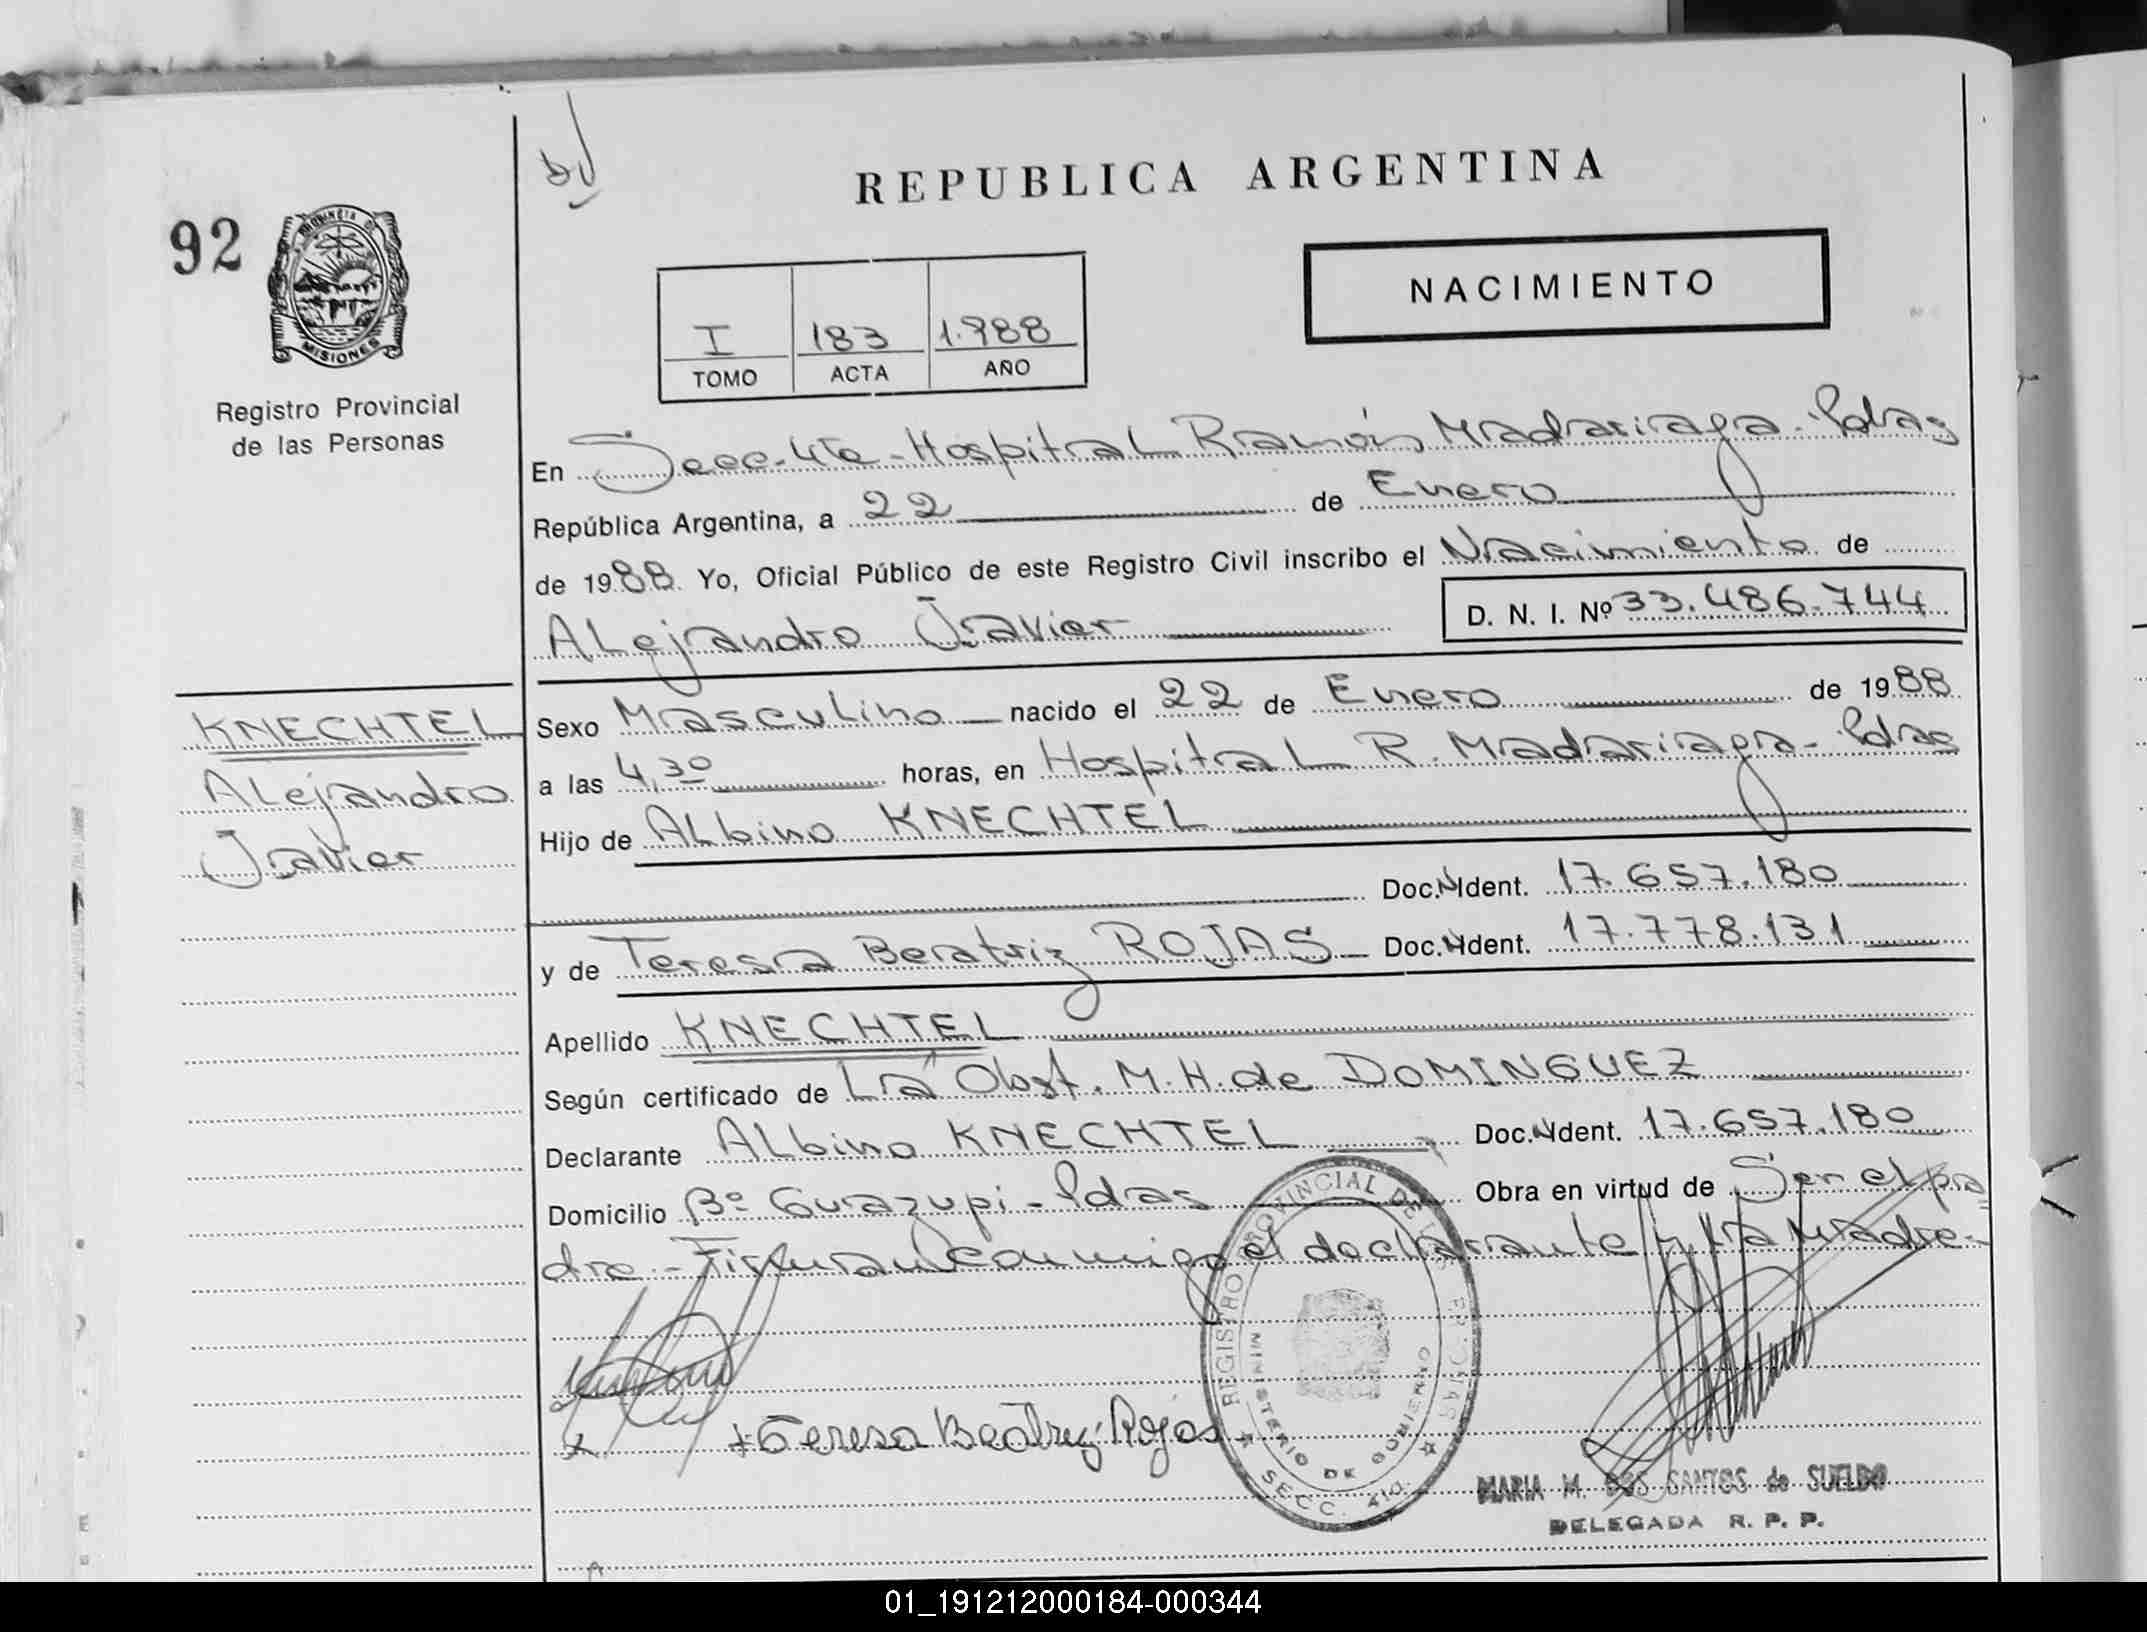 REPUBLICA ARGENTINA
92
PROVINCIA DE
MISIONES
Registro Provincial
de las Personas
NACIMIENTO
I 183 1.988
TOMO ACTA AÑO
En Secc. 4ta - Hospital Ramón Madariaga - Pdas
República Argentina, a 22 de Enero
de 1988. Yo, Oficial Público de este Registro Civil inscribo el Nacimiento de
Alejandro Javier D. N. I. Nº 33.486.744
KNECHTEL
Alejandro
Javier
Sexo Masculino nacido el 22 de Enero de 1988
a las 4,30 horas, en Hospital R. Madariaga - Pdas
Hijo de Albino KNECHTEL
Doc. N Ident. 17.657.180
y de Teresa Beatriz ROJAS Doc. N Ident. 17.778.131
Apellido KNECHTEL
Según certificado de La Obst. M. H. de DOMINGUEZ
Declarante Albino KNECHTEL Doc. N Ident. 17.657.180
Domicilio Bº Guazupi - Pdas Obra en virtud de Ser el pa
dre - Firman conmigo el declarante y la Madre -
+ Teresa Beatriz Rojas
REGISTRO PROVINCIAL DE LAS PERSONAS
MINISTERIO DE GOBIERNO
SECC. 4ta.
MARIA M. DOS SANTOS de SUELDO
DELEGADA R. P. P.
01_191212000184-000344